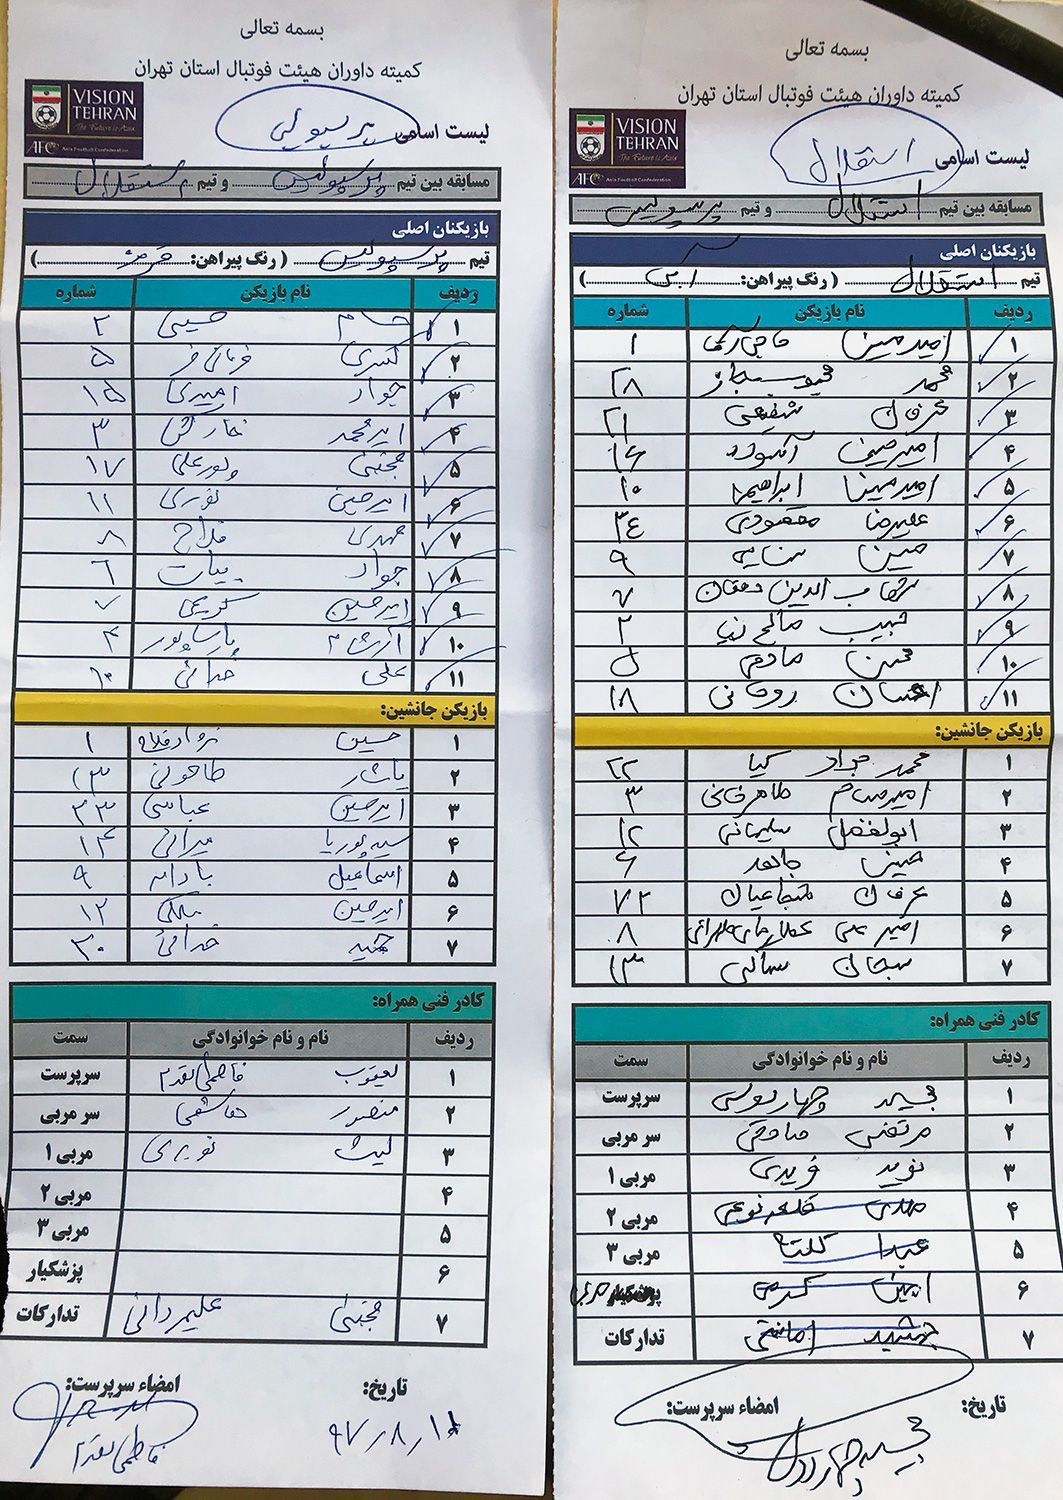 بسمه تعالی
کمیته داوران هیئت فوتبال استان تهران
VISION
TEHRAN
The Future is Asia
AFC Asia Football Confederation
لیست اسامی پرسپولیس
مسابقه بین تیم پرسپولیس و تیم استقلال
بازیکنان اصلی
تیم پرسپولیس ( رنگ پیراهن: قرمز )
ردیف نام بازیکن شماره
۱ حسام حسینی ۲
۲ کسری قربانی فر ۵
۳ جواد امیری ۱۵
۴ امیرمحمد ۳
۵ مجتبی پورعلی ۱۷
۶ امیرحسین نوری ۱۱
۷ مهدی فلاح ۸
۸ جواد بیات ۶
۹ امیرحسین کریمی ۷
۱۰ آرشام پارساپور ۴
۱۱ علی خدائی ۱۰
بازیکن جانشین:
۱ حسین ۱
۲ یاشار طاحونی ۱۳
۳ امیرحسین عباسی ۳۳
۴ سیدپوریا میرائی ۱۴
۵ اسماعیل ۹
۶ امیرحسین ملکی ۱۲
۷ خدائی ۳۰
کادر فنی همراه:
ردیف نام و نام خوانوادگی سمت
۱ یعقوب فاطمی مقدم سرپرست
۲ منصور هاشمی سر مربی
۳ لیث نوبری مربی ۱
۴ مربی ۲
۵ مربی ۳
۶ پزشکیار
۷ مجتبی علیمردانی تدارکات
تاریخ: امضاء سرپرست:
۹۷/۸/۱۱
فاطمی مقدم
بسمه تعالی
کمیته داوران هیئت فوتبال استان تهران
VISION
TEHRAN
The Future is Asia
AFC Asia Football Confederation
لیست اسامی استقلال
مسابقه بین تیم استقلال و تیم پرسپولیس
بازیکنان اصلی
تیم استقلال ( رنگ پیراهن: آبی )
ردیف نام بازیکن شماره
۱ امیرمبین ۱
۲ محمد ۲۸
۳ عرفان شفیعی ۲۱
۴ امیرحسین آسوده ۱۶
۵ امیرمینا ابراهیم ۱۰
۶ علیرضا مقصودی ۳۴
۷ مبین سنایی ۹
۸ شهاب الدین دهقان ۷
۹ حبیب صالح نیا ۲
۱۰ محسن صادقی ۵
۱۱ احسان روحانی ۱۸
بازیکن جانشین:
۱ محمد جواد کیا ۲۲
۲ امیرسام طاهرخانی ۳
۳ ابولفضل سلیمانی ۱۲
۴ مبین جاهد ۶
۵ عرفان شجاعیان ۷۲
۶ امیرعلی ۸
۷ سبحان ساکی ۱۳
کادر فنی همراه:
ردیف نام و نام خوانوادگی سمت
۱ مجید چهاردولی سرپرست
۲ مرتضی صادقی سر مربی
۳ نوید فریدی مربی ۱
۴ مهدی قلعه نوعی مربی ۲
۵ عبدا مربی ۳
۶ امین کرمی
۷ جمشید امانتی تدارکات
تاریخ: امضاء سرپرست:
مجید چهاردولی